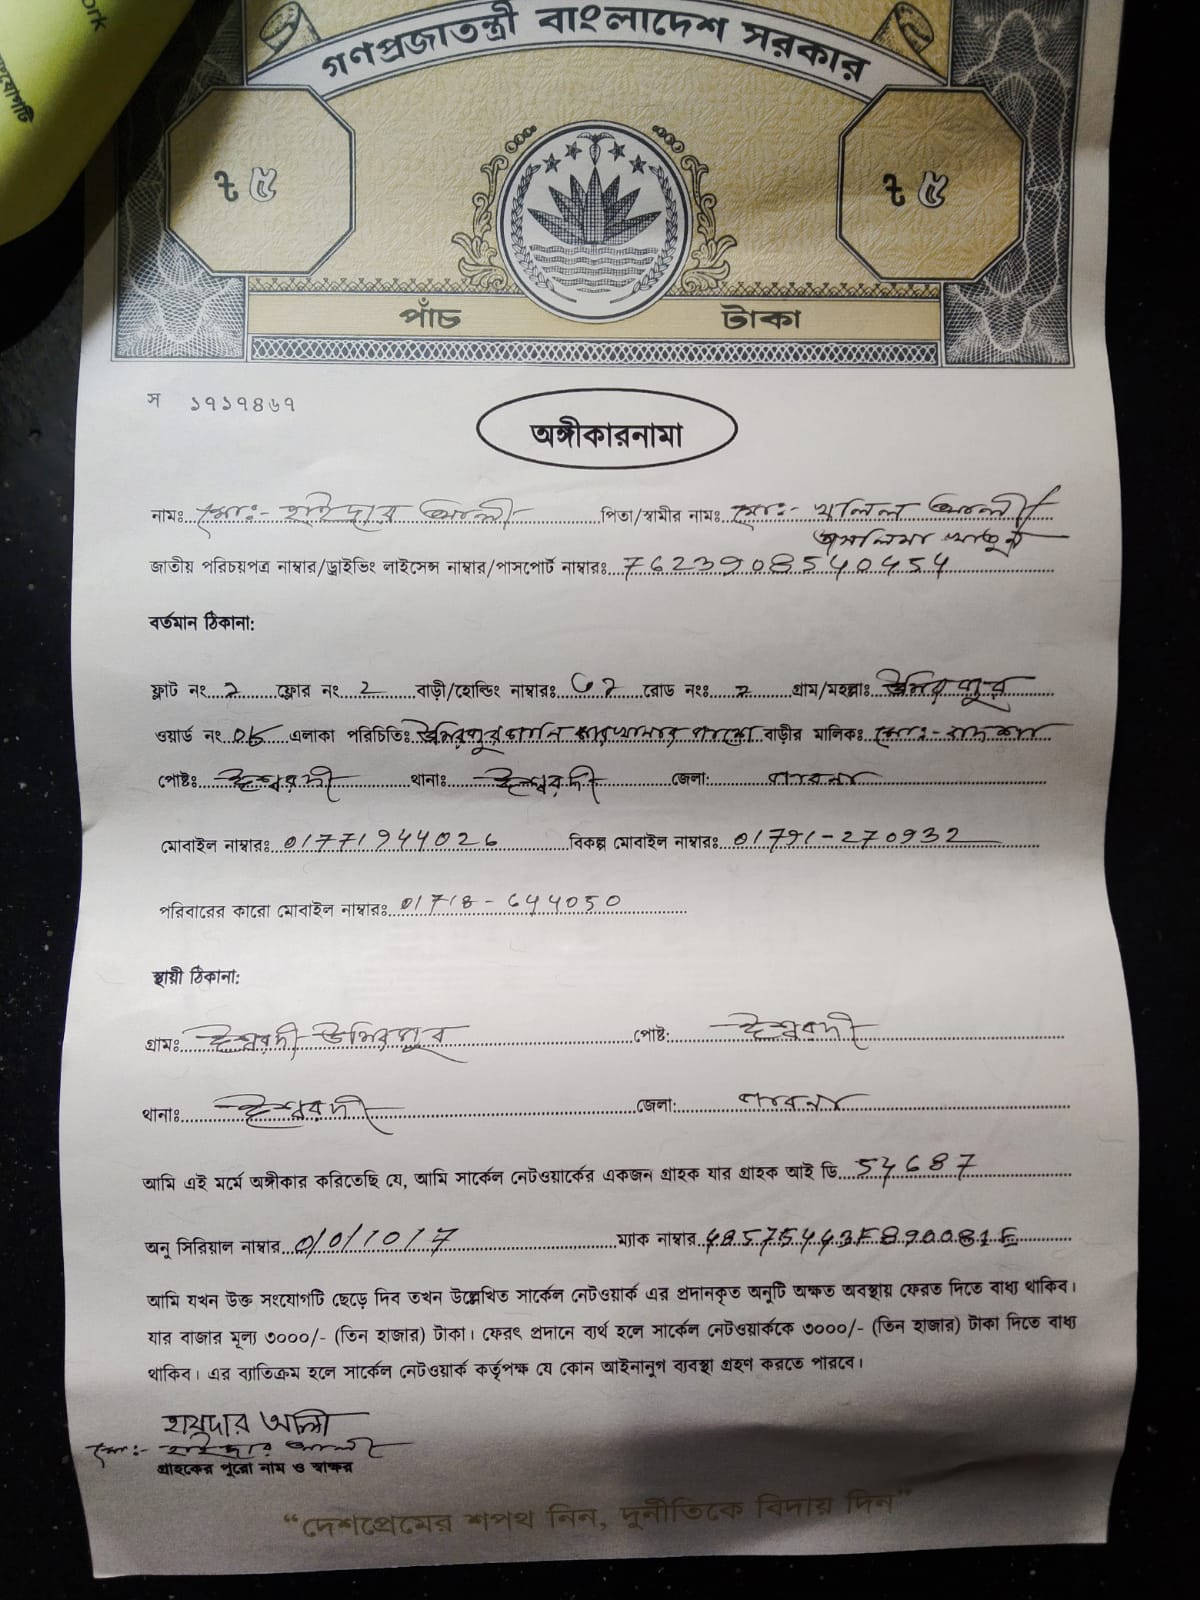 গণপ্রজাতন্ত্রী বাংলাদেশ সরকার
৳ ৫ ৳ ৫
পাঁচ টাকা
স ১৭১৭৪৬৭
অঙ্গীকারনামা
নামঃ মোঃ- হাইদার আলী পিতা/স্বামীর নামঃ মোঃ- খলিল আলী
জাতীয় পরিচয়পত্র নাম্বার/ড্রাইভিং লাইসেন্স নাম্বার/পাসপোর্ট নাম্বারঃ
বর্তমান ঠিকানা:
ফ্লাট নং ফ্লোর নং 2 বাড়ী/হোল্ডিং নাম্বারঃ রোড নংঃ গ্রাম/মহল্লাঃ উমিরপুর
ওয়ার্ড নং এলাকা পরিচিতিঃ উমিরপুর পানি কারখানার পাশে বাড়ীর মালিকঃ মোঃ-
পোষ্টঃ ঈশ্বরদী থানাঃ ঈশ্বরদী জেলা: পাবনা
মোবাইল নাম্বারঃ 01771944026 বিকল্প মোবাইল নাম্বারঃ 01791-270932
পরিবারের কারো মোবাইল নাম্বারঃ 01718-644050
স্থায়ী ঠিকানা:
গ্রামঃ ঈশ্বরদী উমিরপুর পোষ্ট: ঈশ্বরদী
থানাঃ ঈশ্বরদী জেলা: পাবনা
আমি এই মর্মে অঙ্গীকার করিতেছি যে, আমি সার্কেল নেটওয়ার্কের একজন গ্রাহক যার গ্রাহক আই ডি 54687
অনু সিরিয়াল নাম্বার 0/0/10/7 ম্যাক নাম্বার
আমি যখন উক্ত সংযোগটি ছেড়ে দিব তখন উল্লেখিত সার্কেল নেটওয়ার্ক এর প্রদানকৃত অনুটি অক্ষত অবস্থায় ফেরত দিতে বাধ্য থাকিব।
যার বাজার মূল্য ৩০০০/- (তিন হাজার) টাকা। ফেরৎ প্রদানে ব্যর্থ হলে সার্কেল নেটওয়ার্ককে ৩০০০/- (তিন হাজার) টাকা দিতে বাধ্য
থাকিব। এর ব্যতিক্রম হলে সার্কেল নেটওয়ার্ক কর্তৃপক্ষ যে কোন আইনানুগ ব্যবস্থা গ্রহণ করতে পারবে।
হায়দার আলী
মোঃ- হাইদার আলী
গ্রাহকের পুরো নাম ও স্বাক্ষর
“দেশপ্রেমের শপথ নিন, দুর্নীতিকে বিদায় দিন”